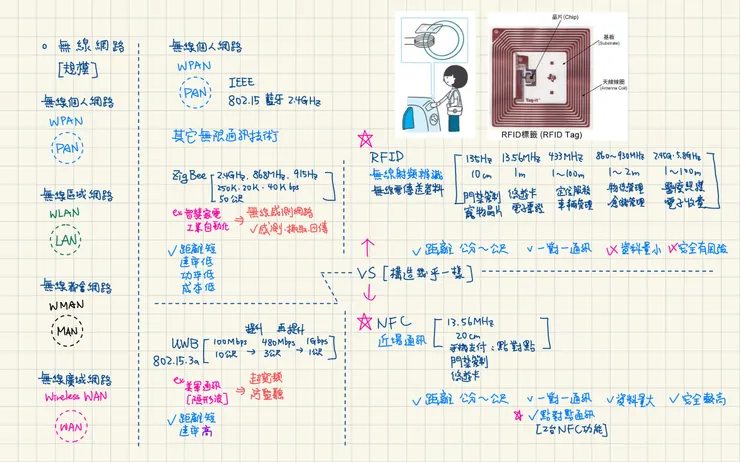 無線網路
[規模]
無線個人網路
WPAN
PAN
無線區域網路
WLAN
LAN
無線都會網路
WMAN
MAN
無線廣域網路
Wireless WAN
WAN
無線個人網路
WPAN
PAN
IEEE
802.15 藍牙 2.4GHz
其它無限通訊技術
ZigBee
2.4GHz, 868MHz, 915Hz
250K·20K·40Kbps
50公尺
ex 智慧家電
工業自動化
⇒ 無線感測網路
✓感測·擷取·回傳
✓距離短
速率低
功率低
成本低
UWB
802.15.3a
提升 再提升
100Mbps → 480Mbps → 1Gbps
10公尺 3公尺 1公尺
ex 美軍通訊
[隱形波]
⇒ 超寬頻
防監聽
✓距離短
速率高
晶片(Chip)
基板
(Substrate)
天線線圈
(Antenna Coil)
Tag-it
RFID標籤 (RFID Tag)
RFID
無線射頻辨識
無線電傳送資料
135Hz 13.56MHz 433MHz 860~930MHz 2.45G·5.8GHz
10cm 1m 1~100m 1~2m 1~100m
門禁管制 悠遊卡 定位服務 物流管理 醫療照護
寵物晶片 電子票證 車輛管理 倉儲管理 電子收費
✓距離 公分~公尺 ✓一對一通訊 ✗資料量小 ✗安全有風險
VS [構造幾乎一樣]
NFC
近場通訊
13.56MHz
20cm
手機支付:點對點
門禁管制
悠遊卡
✓距離 公分~公尺 ✓一對一通訊 ✓資料量大 ✓安全較高
✓點對點通訊
[2台NFC功能]